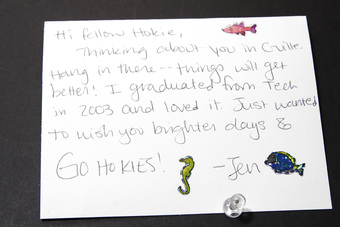 Hi fellow Hokie,
Thinking about you in C'ville.
Hang in there -- things will get
better! I graduated from Tech
in 2003 and loved it. Just wanted
to wish you brighter days &
GO HOKIES! - Jen